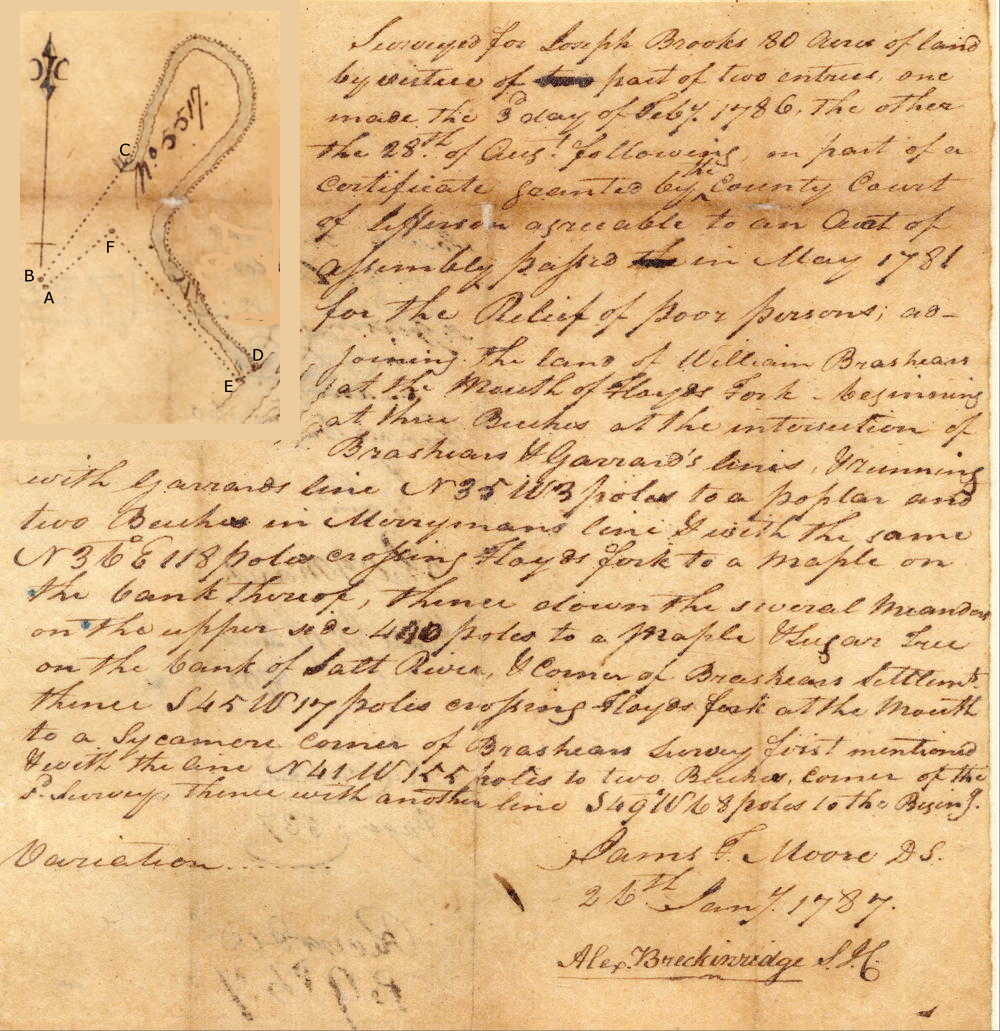 C
No 5517.
F
B
A
D
E
Surveyed for Joseph Brooks 80 Acres of land
by vertue of part of two entries, one
made the 3d day of Feby. 1786. the other
the 28th of Augt. following in part of a
certificate granted by the County Court
of Jefferson agreeable to an Act of
assembly passed in May 1781
for the Relief of poor persons; ad-
joining the land of William Brashears
at the Mouth of Floyds Fork - beginning
at three Beeches at the intersection of
Brashears & Garrard's lines, & running
with Garrards line N35W3 poles to a poplar and
two Beeches in Merrymans line & with the same
N36°E 118 poles crossing Floyds fork to a Maple on
the bank thereof, thence down the several Meanders
on the upper side poles to a Maple & Sugar Tree
on the bank of Salt River, & Corner of Brashears Settlemt.
thence S45W17 poles crossing Floyds fork at the Mouth
to a Sycamore corner of Brashears Survey first mentioned
& with the line N41W155 poles to two Beeches, corner of the
sd. Survey, thence with another line S49°W68 poles to the Beging.
Variation ..........
James F. Moore D S.
26th Jany. 1787.
Alex. Breckinridge S.J.C.